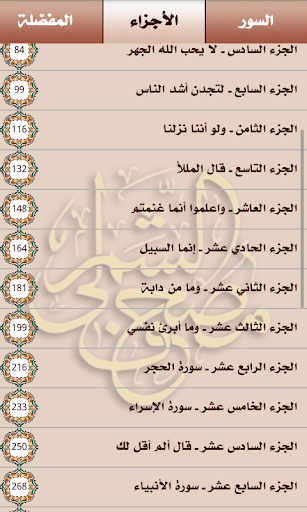 السور
الأجزاء
المفضلة
الجزء السادس ـ لا يحب الله الجهر 84
الجزء السابع ـ لتجدن أشد الناس 99
الجزء الثامن ـ ولو أننا نزلنا 116
الجزء التاسع ـ قال الملأ 132
الجزء العاشر ـ واعلموا أنما غنمتم 148
الجزء الحادي عشر ـ إنما السبيل 164
الجزء الثاني عشر ـ وما من دابة 181
الجزء الثالث عشر ـ وما أبرئ نفسي 199
الجزء الرابع عشر ـ سورة الحجر 216
الجزء الخامس عشر ـ سورة الإسراء 233
الجزء السادس عشر ـ قال ألم أقل لك 250
الجزء السابع عشر ـ سورة الأنبياء 268